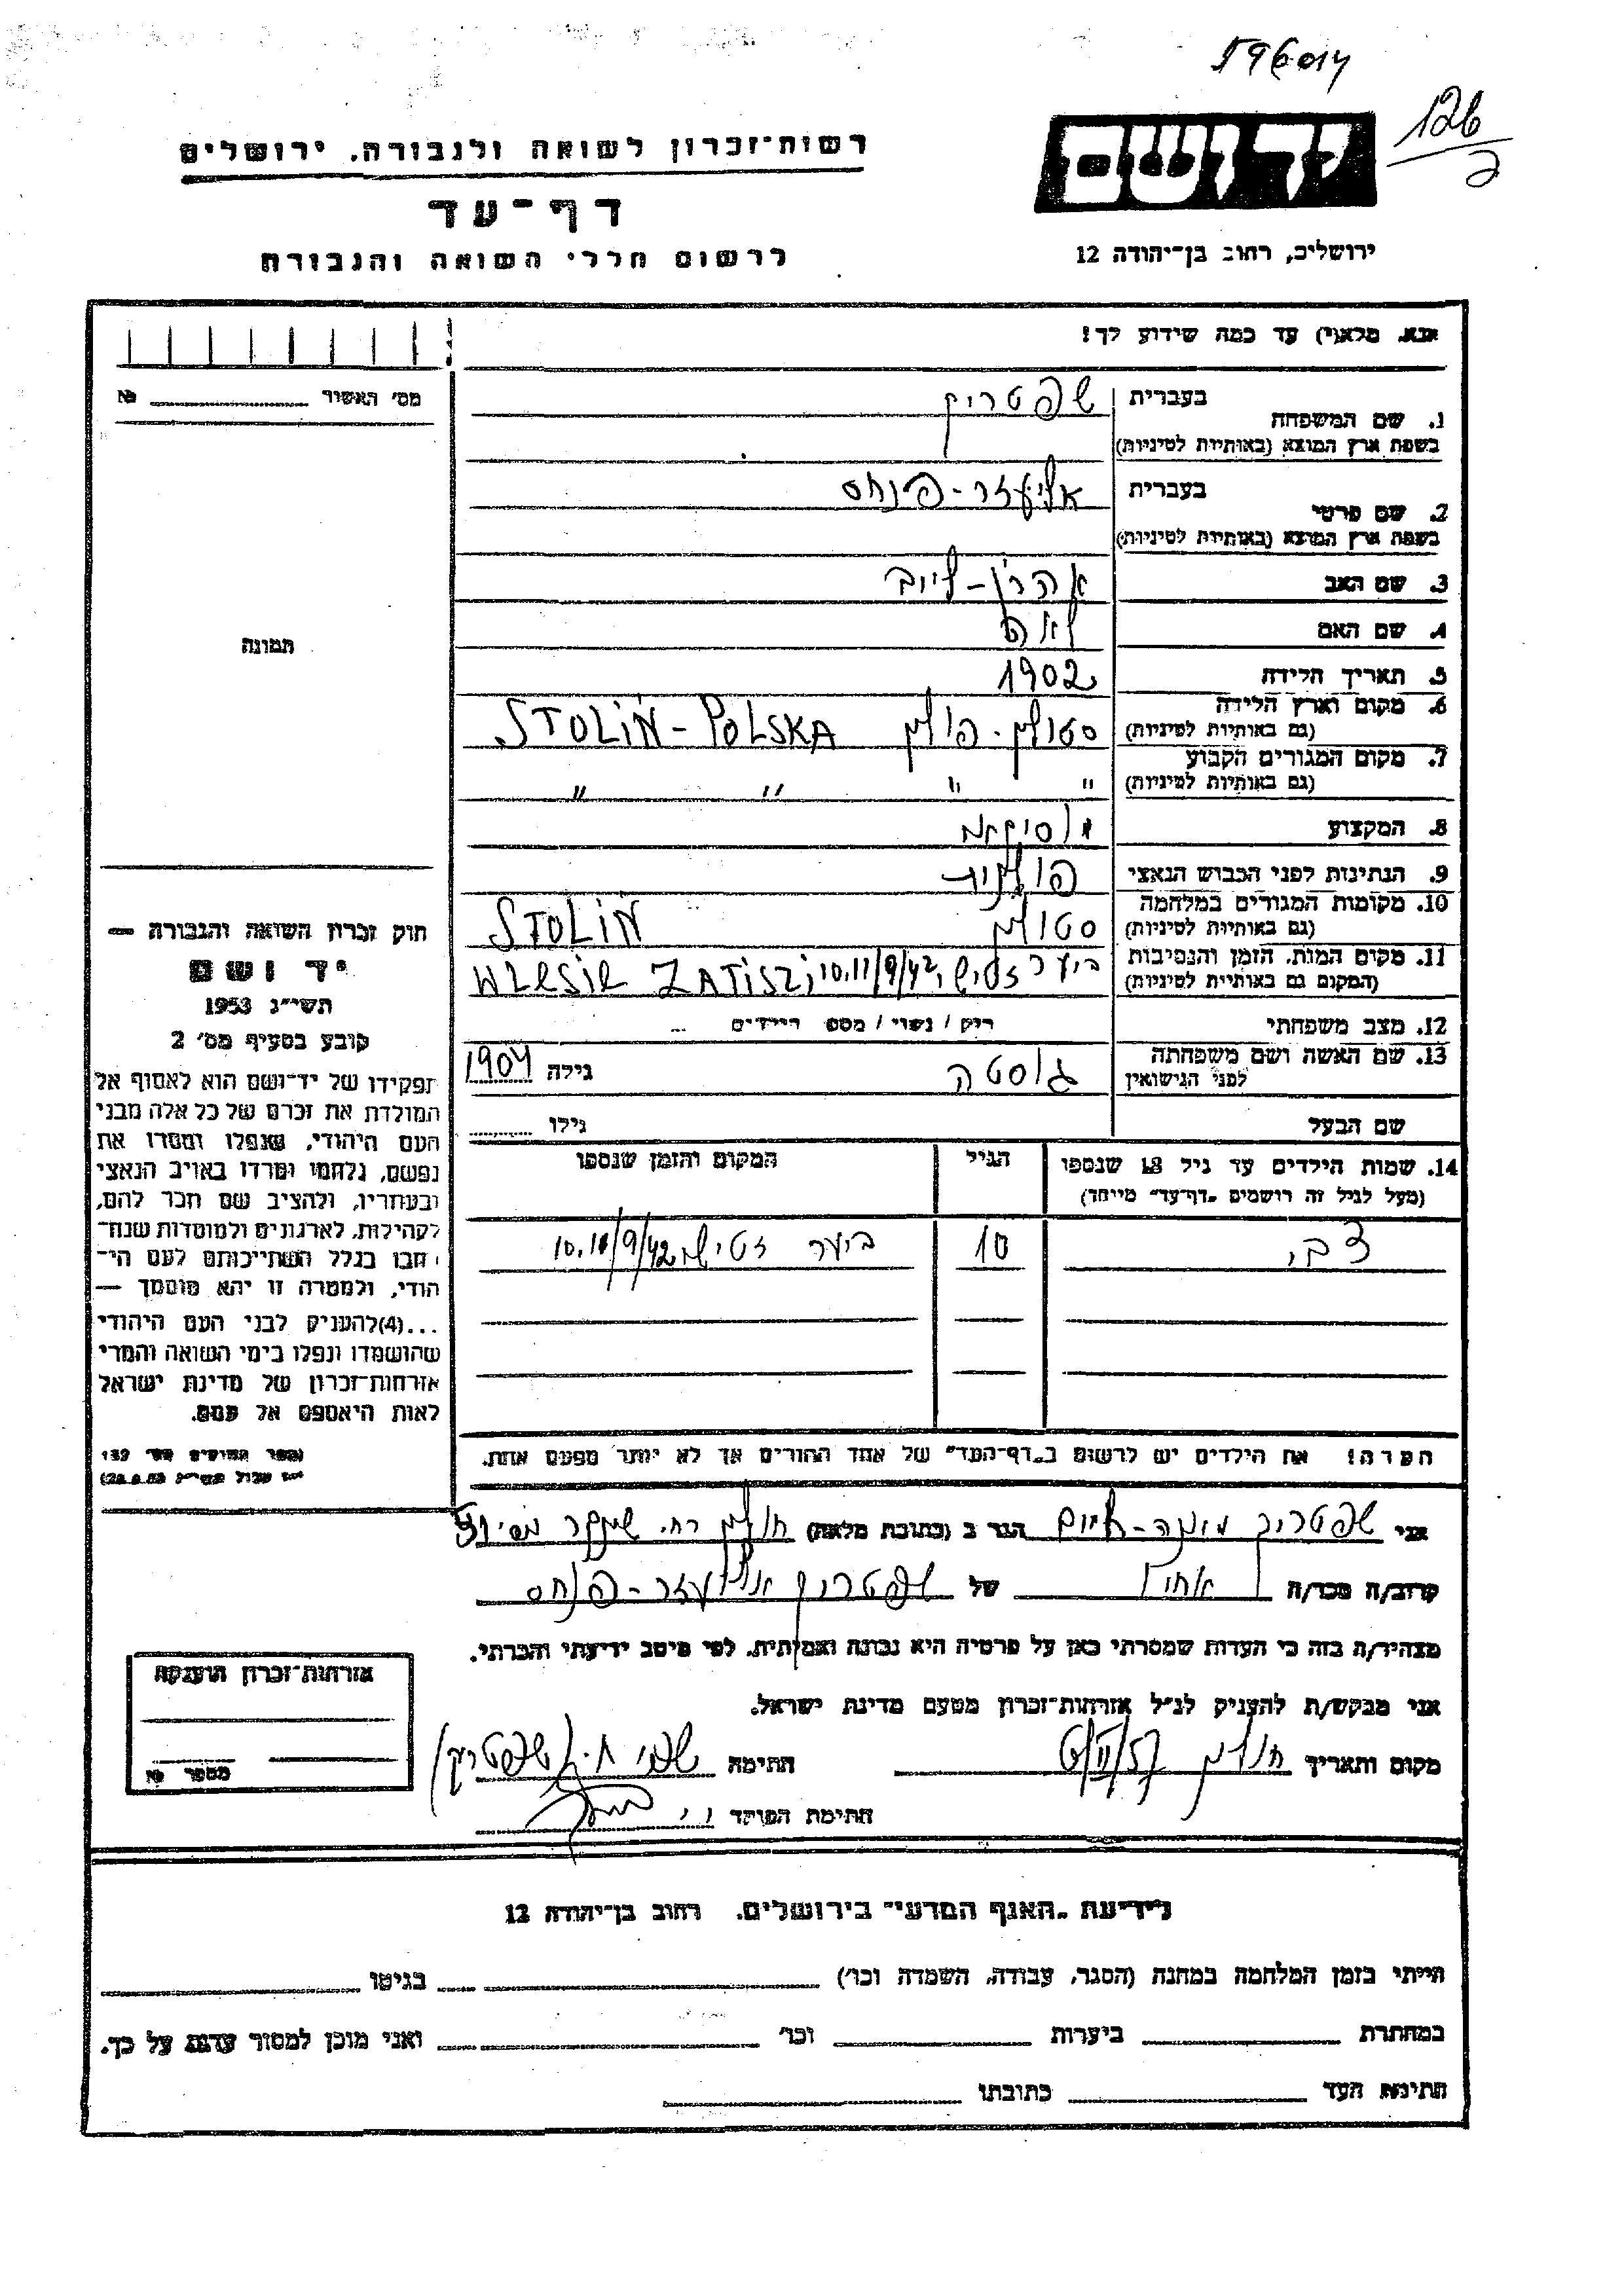 596014
126
ב
יד ושם
ירושלים, רחוב בן־יהודה 12
רשות־זכרון לשואה ולגבורה, ירושלים
דף־עד
לרשום חללי השואה והגבורה
אנא, מלא(י) עד כמה שידוע לך!
מס׳ האשור №
תמונה
1. שם המשפחה בעברית שפטריק
בשפת ארץ המוצא (באותיות לטיניות)
2. שם פרטי בעברית אליעזר-פנחס
בשפת ארץ המוצא (באותיות לטיניות)
3. שם האב אהרן-לייב
4. שם האם לאה
5. תאריך הלידה 1902
6. מקום וארץ הלידה סטולין-פולין STOLIN-POLSKA
(גם באותיות לטיניות)
7. מקום המגורים הקבוע " " " "
(גם באותיות לטיניות)
8. המקצוע
9. הנתינות לפני הכבוש הנאצי פולנית
10. מקומות המגורים במלחמה סטולין STOLIN
(גם באותיות לטיניות)
11. מקום המות, הזמן והנסיבות ביער זטישי, 10.11/9/42 WLESIE ZATISZI
(המקום גם באותיות לטיניות)
12. מצב משפחתי רוק / נשוי / מספר הילדים
13. שם האשה ושם משפחתה גוסטה גילה 1904
לפני הנישואין
שם הבעל גילו
14. שמות הילדים עד גיל 18 שנספו הגיל המקום והזמן שנספו
(מעל לגיל זה רושמים „דף־עד" מיוחד)
צבי 10 ביער זטישי 10.11/9/42
הערה! את הילדים יש לרשום ב„דף־העד" של אחד ההורים אך לא יותר מפעם אחת.
חוק זכרון השואה והגבורה —
יד ושם
תשי״ג 1953
קובע בסעיף מס׳ 2
תפקידו של יד־ושם הוא לאסוף אל
המולדת את זכרם של כל אלה מבני
העם היהודי, שנפלו ומסרו את
נפשם, נלחמו ומרדו באויב הנאצי
ובעוזריו, ולהציב שם וזכר להם,
לקהילות, לארגונים ולמוסדות שנח־
רבו בגלל השתייכותם לעם הי־
הודי, ולמטרה זו יהא מוסמך —
...(4)להעניק לבני העם היהודי
שהושמדו ונפלו בימי השואה והמרי
אזרחות־זכרון של מדינת ישראל
לאות היאספם אל עמם.
(ספר החוקים מס׳ 132
י״ז אלול תשי״ג 28.8.53)
אני שפטריק חיים הגר ב (כתובת מלאה) חולון רח׳ שינקר
קרוב/ה מכר/ה אחיו של שפטריק אליעזר-פנחס
מצהיר/ה בזה כי העדות שמסרתי כאן על פרטיה היא נכונה ואמיתית, לפי מיטב ידיעתי והכרתי.
אני מבקש/ת להעניק לנ״ל אזרחות־זכרון מטעם מדינת ישראל.
מקום ותאריך חולון 6/II/57 חתימה
חתימת הפוקד
אזרחות־זכרון הוענקה
מספר №
לידיעת „האגף המדעי" בירושלים, רחוב בן־יהודה 12
הייתי בזמן המלחמה במחנה (הסגר, עבודה, השמדה וכו׳) בגיטו
במחתרת ביערות וכו׳ ואני מוכן למסור עדות על כך.
חתימת העד כתובתו